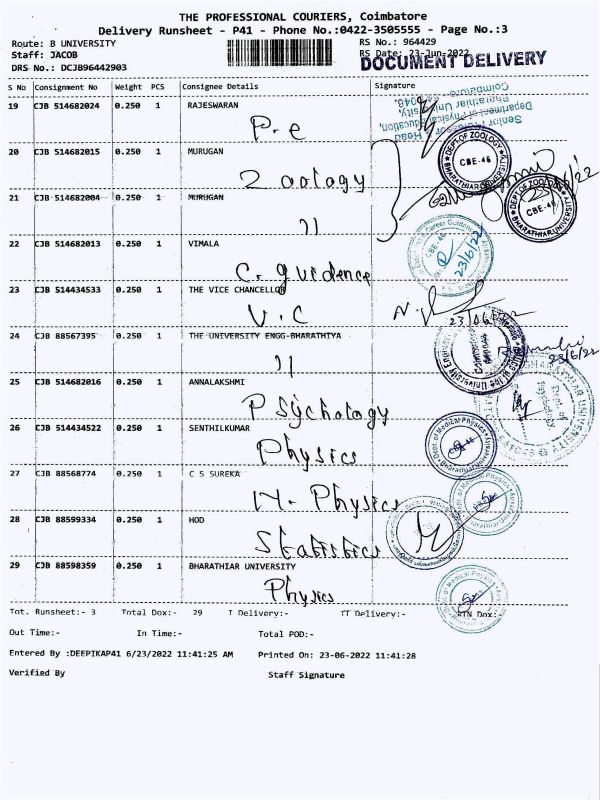 THE PROFESSIONAL COURIERS, Coimbatore
Delivery Runsheet - P41 - Phone No.:0422-3505555 - Page No.:3
Route: B UNIVERSITY
RS No.: 964429
Staff: JACOB
RS Date: 23-Jun-2022
DOCUMENT DELIVERY
DRS No.: DCJB96442903
S No Consignment No Weight PCS Consignee Details Signature
19 CJB 514682024 0.250 1 RAJESWARAN
P.e
Senior Professor & Head
Physical Education,
Bharathiar University,
Coimbatore 046.
20 CJB 514682015 0.250 1 MURUGAN
Zoology
DEPT OF ZOOLOGY
CBE-46
BHARATHIAR UNIVERSITY
21 CJB 514682004 0.250 1 MURUGAN
11
DEPT OF ZOOLOGY
CBE-46
BHARATHIAR UNIVERSITY
22 CJB 514682013 0.250 1 VIMALA
C. guidence
CBE-46
23/6/22
23 CJB 514434533 0.250 1 THE VICE CHANCELLOR
V.C
23/06/22
24 CJB 88567395 0.250 1 THE UNIVERSITY ENGG-BHARATHIYA
11
23/6/22
25 CJB 514682016 0.250 1 ANNALAKSHMI
Psychology
Dept. of
Psychology
BHARATHIAR UNIVERSITY
26 CJB 514434522 0.250 1 SENTHILKUMAR
Physics
Dept. of Medical Physics
Bharathiar University
27 CJB 88568774 0.250 1 C S SUREKA
M- Physics
Dept. of Medical Physics
28 CJB 88599334 0.250 1 HOD
Statistics
29 CJB 88598359 0.250 1 BHARATHIAR UNIVERSITY
Physics
Dept. of Medical Physics
Tot. Runsheet:- 3 Total Dox:- 29 T Delivery:- TT Delivery:- RTN Dox:-
Out Time:- In Time:- Total POD:-
Entered By :DEEPIKAP41 6/23/2022 11:41:25 AM Printed On: 23-06-2022 11:41:28
Verified By Staff Signature